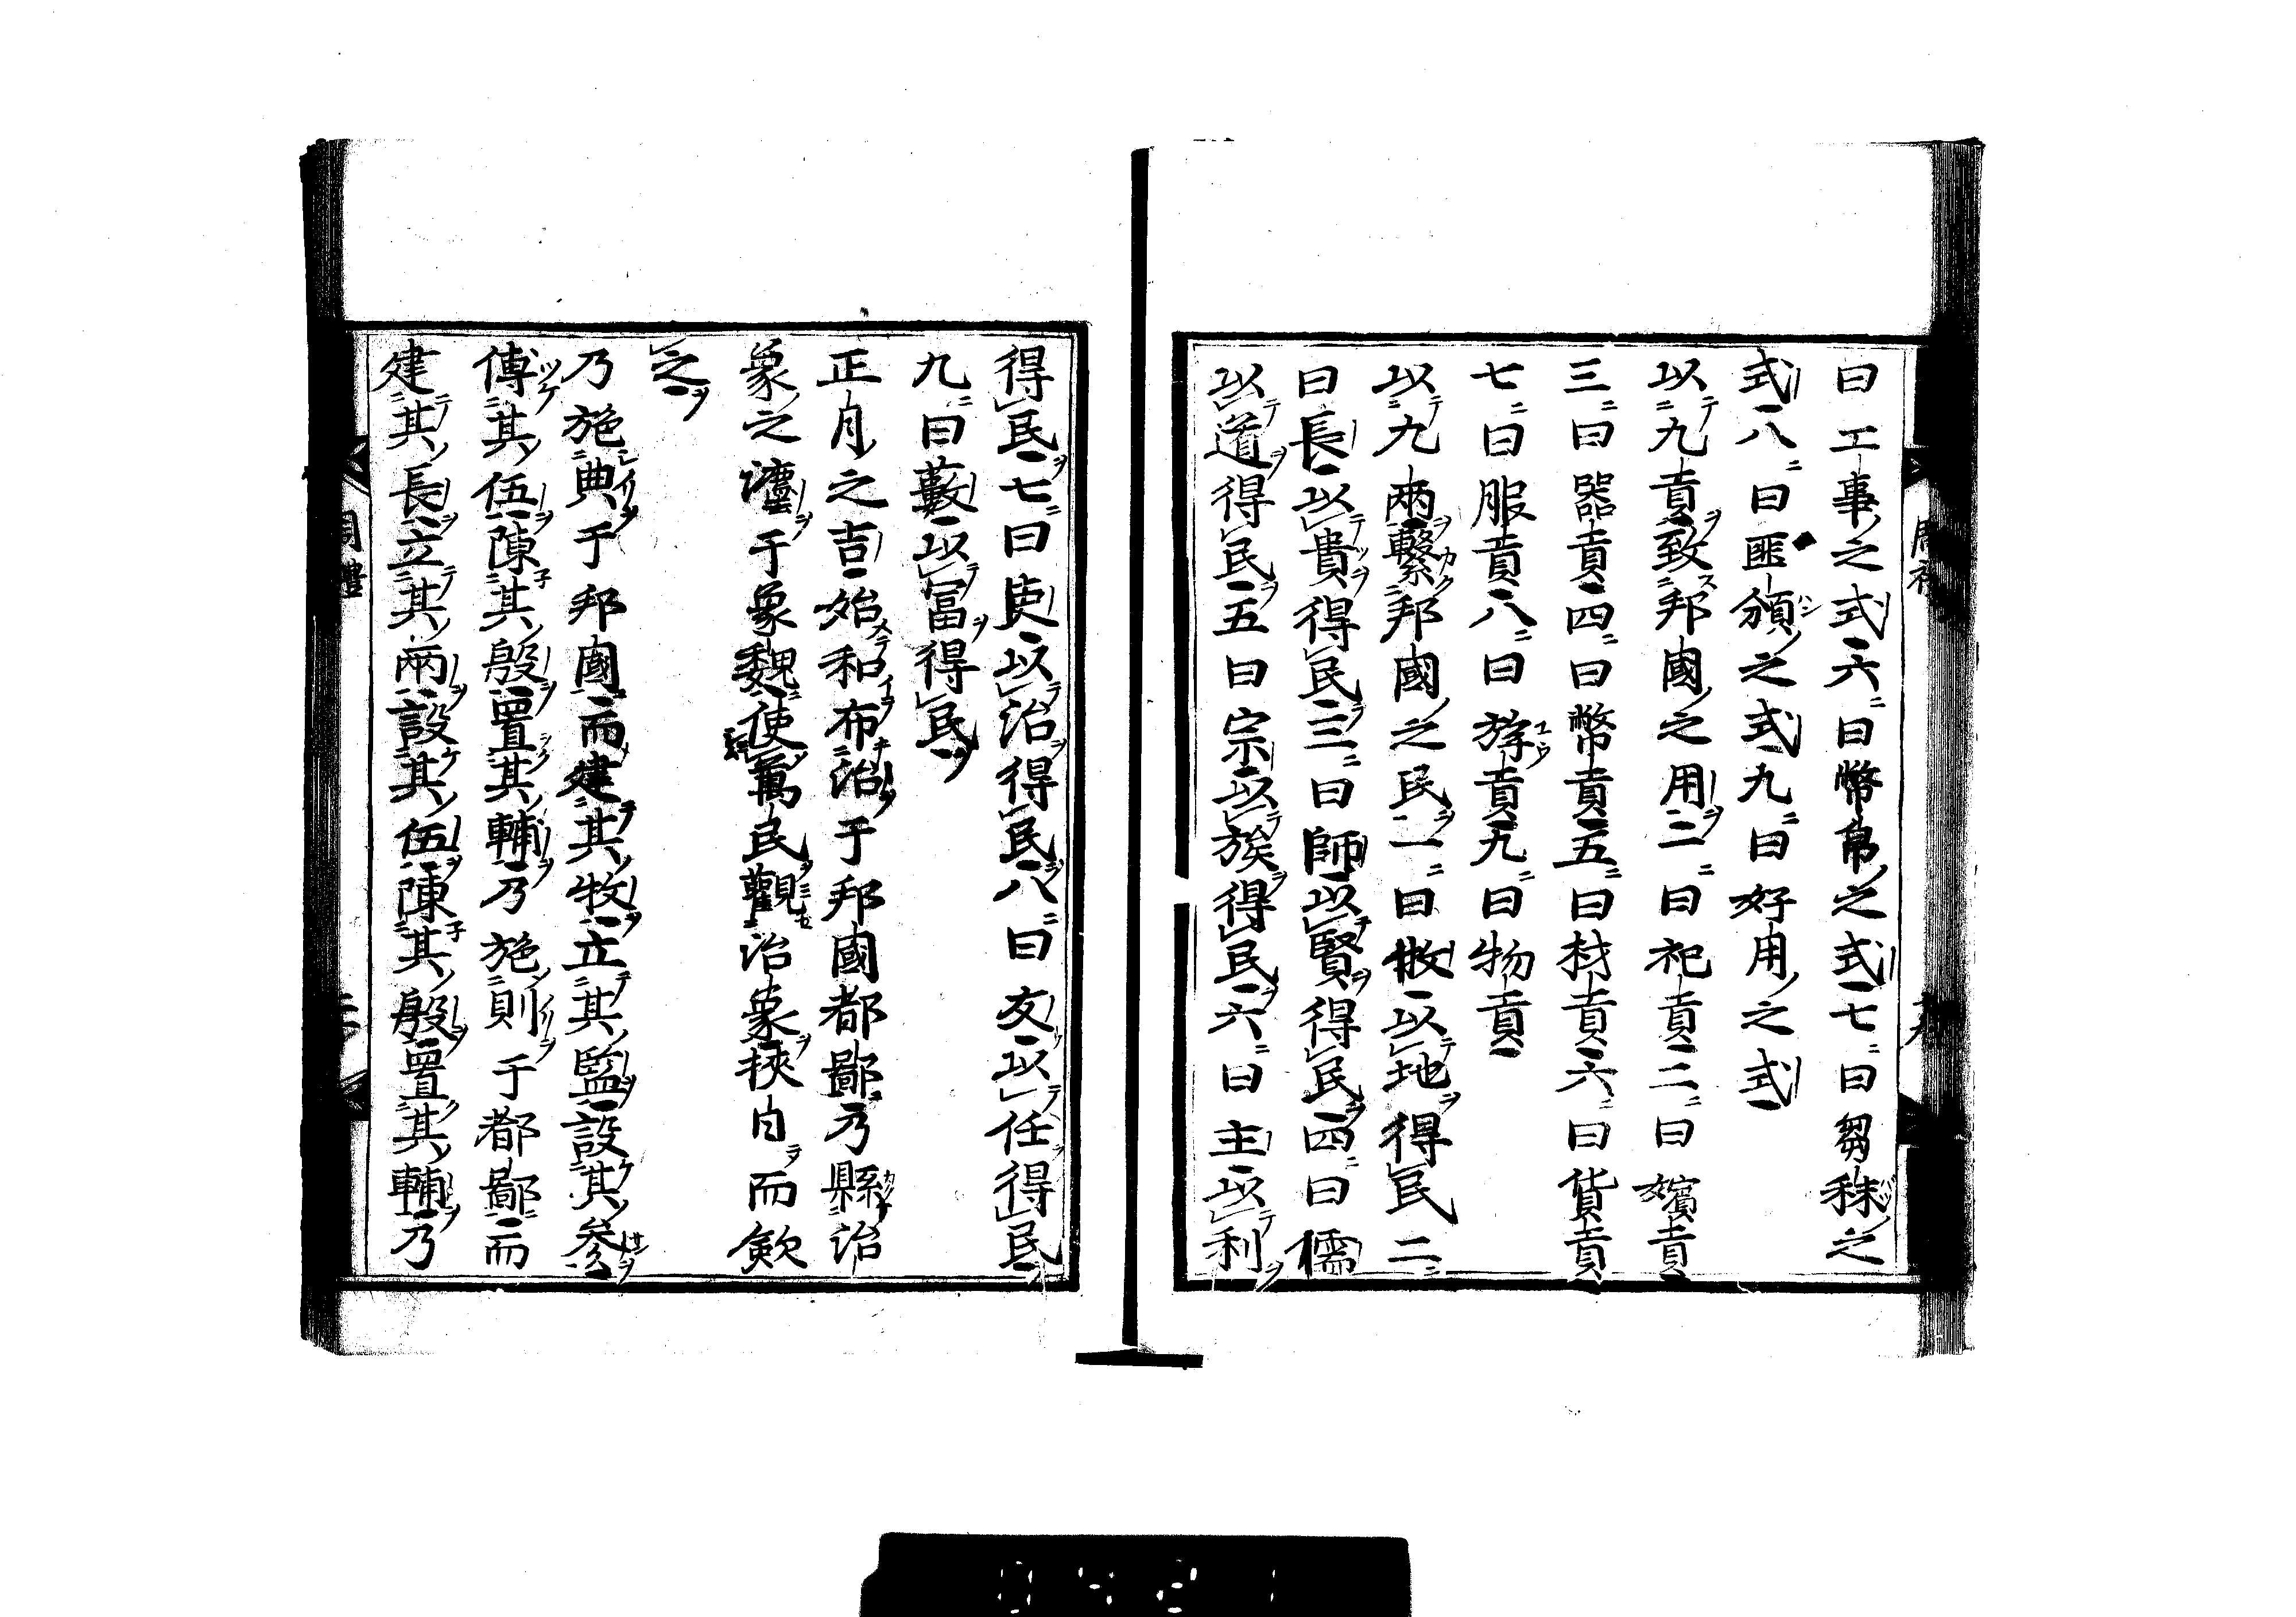 曰工事之式六曰幣帛之式七曰芻秣之
式八曰匪頒之式九曰好用之式
以九貢致邦國之用一曰祀貢二曰嬪貢
三曰器貢四曰幣貢五曰材貢六曰貨貢
七曰服貢八曰斿貢九曰物貢
以九兩繫邦國之民一曰牧以地得民二
曰長以貴得民三曰師以賢得民四曰儒
以道得民五曰宗以族得民六曰主以利
得民七曰吏以治得民八曰友以任得民
九曰藪以富得民
正月之吉始和布治于邦國都鄙乃縣治
象之灋于象魏使萬民觀治象挾日而斂
之
乃施典于邦國而建其牧立其監設其參
傅其伍陳其殷置其輔乃施則于都鄙而
建其長立其兩設其伍陳其殷置其輔乃
周禮
0421